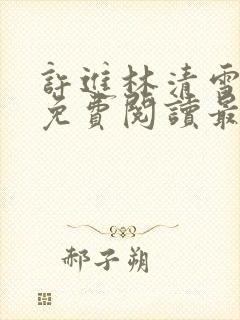 許進林清雪
免費閱讀最
郝子朔